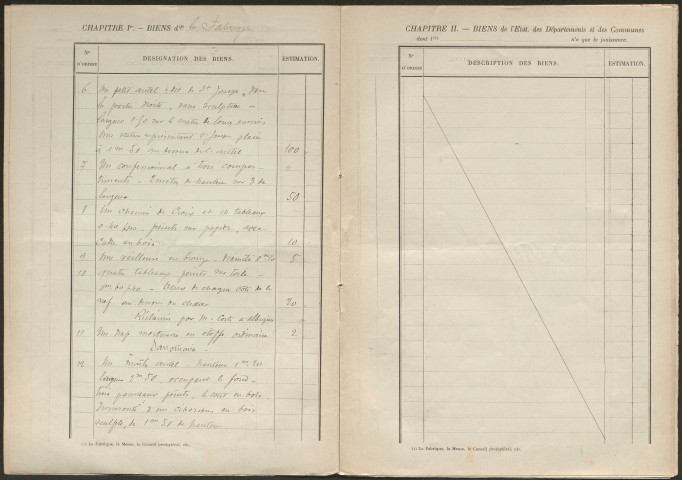 CHAPITRE Ier. — BIENS de la Fabrique
Nos D'ORDRE
DÉSIGNATION DES BIENS.
ESTIMATION.
6 Un petit autel dit de St Joseph, dans
la partie droite, sans sculpture —
largeur 1m50 sur 1 mètre de long environ
Une statue représentant St Joseph placée
à 1m 50 au dessus de l'autel 100
7 Un confessionnal à trois compar-
timents — 2 mètres de hauteur sur 2 de
largeur 50
8 Un Chemin de Croix et 14 tableaux
peints sur papier, avec
Cadre en bois 10
9 Une veilleuse en bronze 5
10 quatre tableaux peints sur toile —
0m 60 — deux de chaque côté de la
nef au dessus du chœur 20
Réclamés par M.
11 Un drap mortuaire en étoffe ordinaire 2
12 Un Maître autel — hauteur 1m
largeur 2m 50, occupant le fond —
trois panneaux peints, le tout en bois
surmonté d'un ciborium en bois
sculpté, de 1m 50 de hauteur
(1) La Fabrique, la Mense, le Conseil presbytéral, etc.
CHAPITRE II. — BIENS de l'État, des Départements et des Communes
dont l (1) n'a que la jouissance.
Nos D'ORDRE
DESCRIPTION DES BIENS.
ESTIMATION.
(1) La Fabrique, la Mense, le Conseil presbytéral, etc.